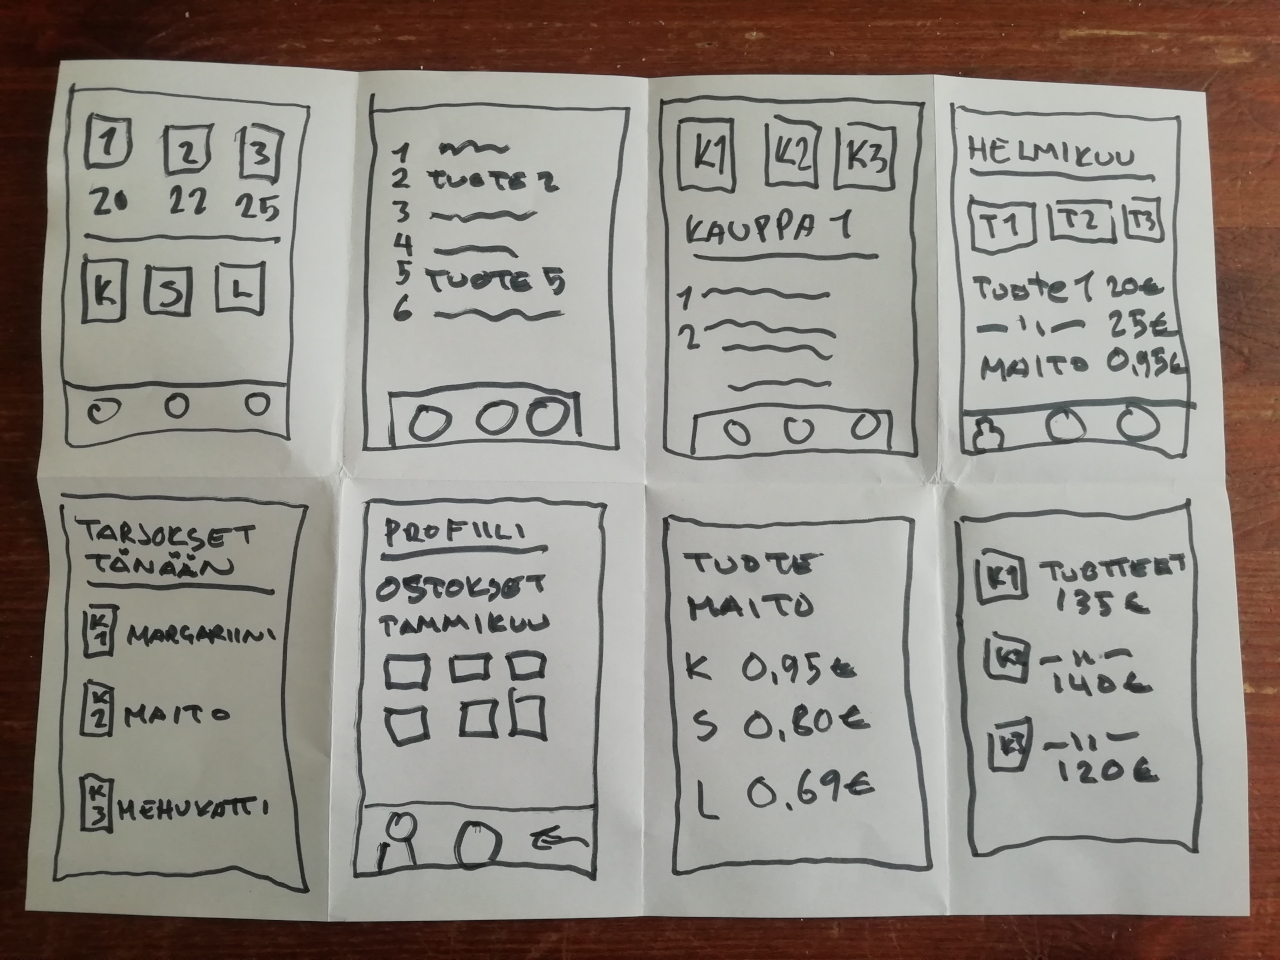 1 2 3
20 22 25
K S L
1
2 TUOTE 2
3
4
5 TUOTE 5
6
K1 K2 K3
KAUPPA 1
1
2
HELMIKUU
T1 T2 T3
Tuote 1 20€
— " — 25€
MAITO 0,95€
TARJOKSET
TÄNÄÄN
K1 MARGARIINI
K2 MAITO
K3 MEHUKATTI
PROFIILI
OSTOKSET
TAMMIKUU
TUOTE
MAITO
K 0,95€
S 0,80€
L 0,69€
K1 TUOTTEET
135€
K2 — " —
140€
K3 — " —
120€